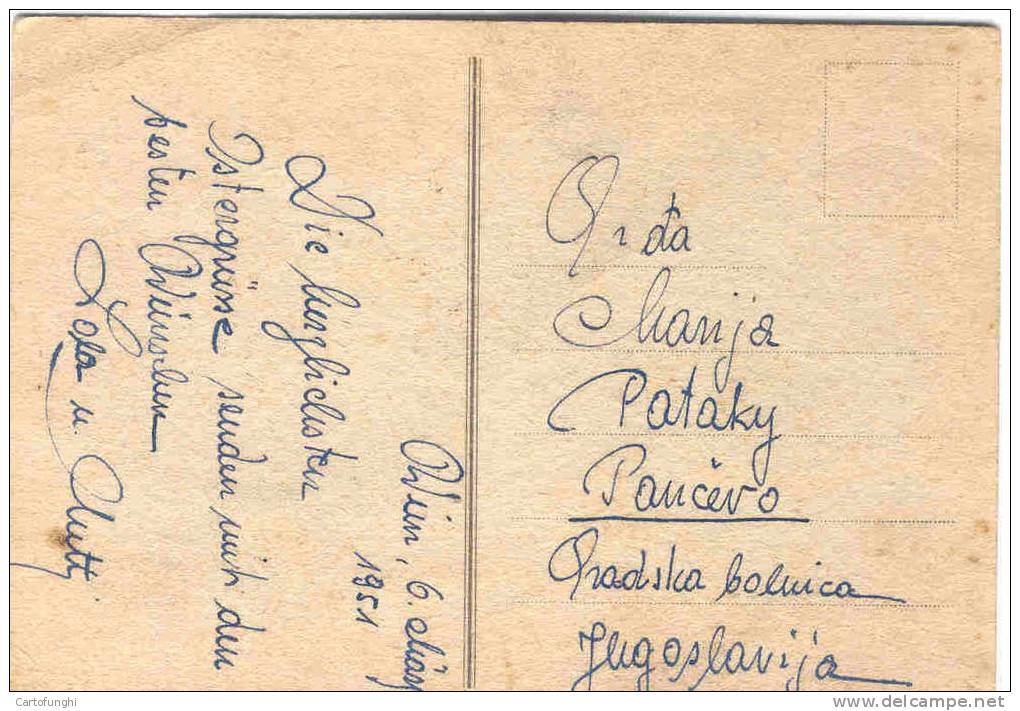 Wien, 6. März
1951
Die herzlichsten
Ostergrüsse senden mit den
besten Wünschen
u. Mutti
Gr đa
Marija
Pataky
Pančevo
Gradska bolnica
Jugoslavija
Cartofunghi
www.delcampe.net